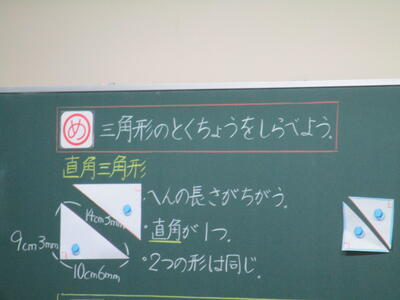 め 三角形のとくちょうをしらべよう。
直角三角形
14cm3mm
9cm3mm
10cm6mm
・へんの長さがちがう。
・直角が1つ。
・2つの形は同じ。